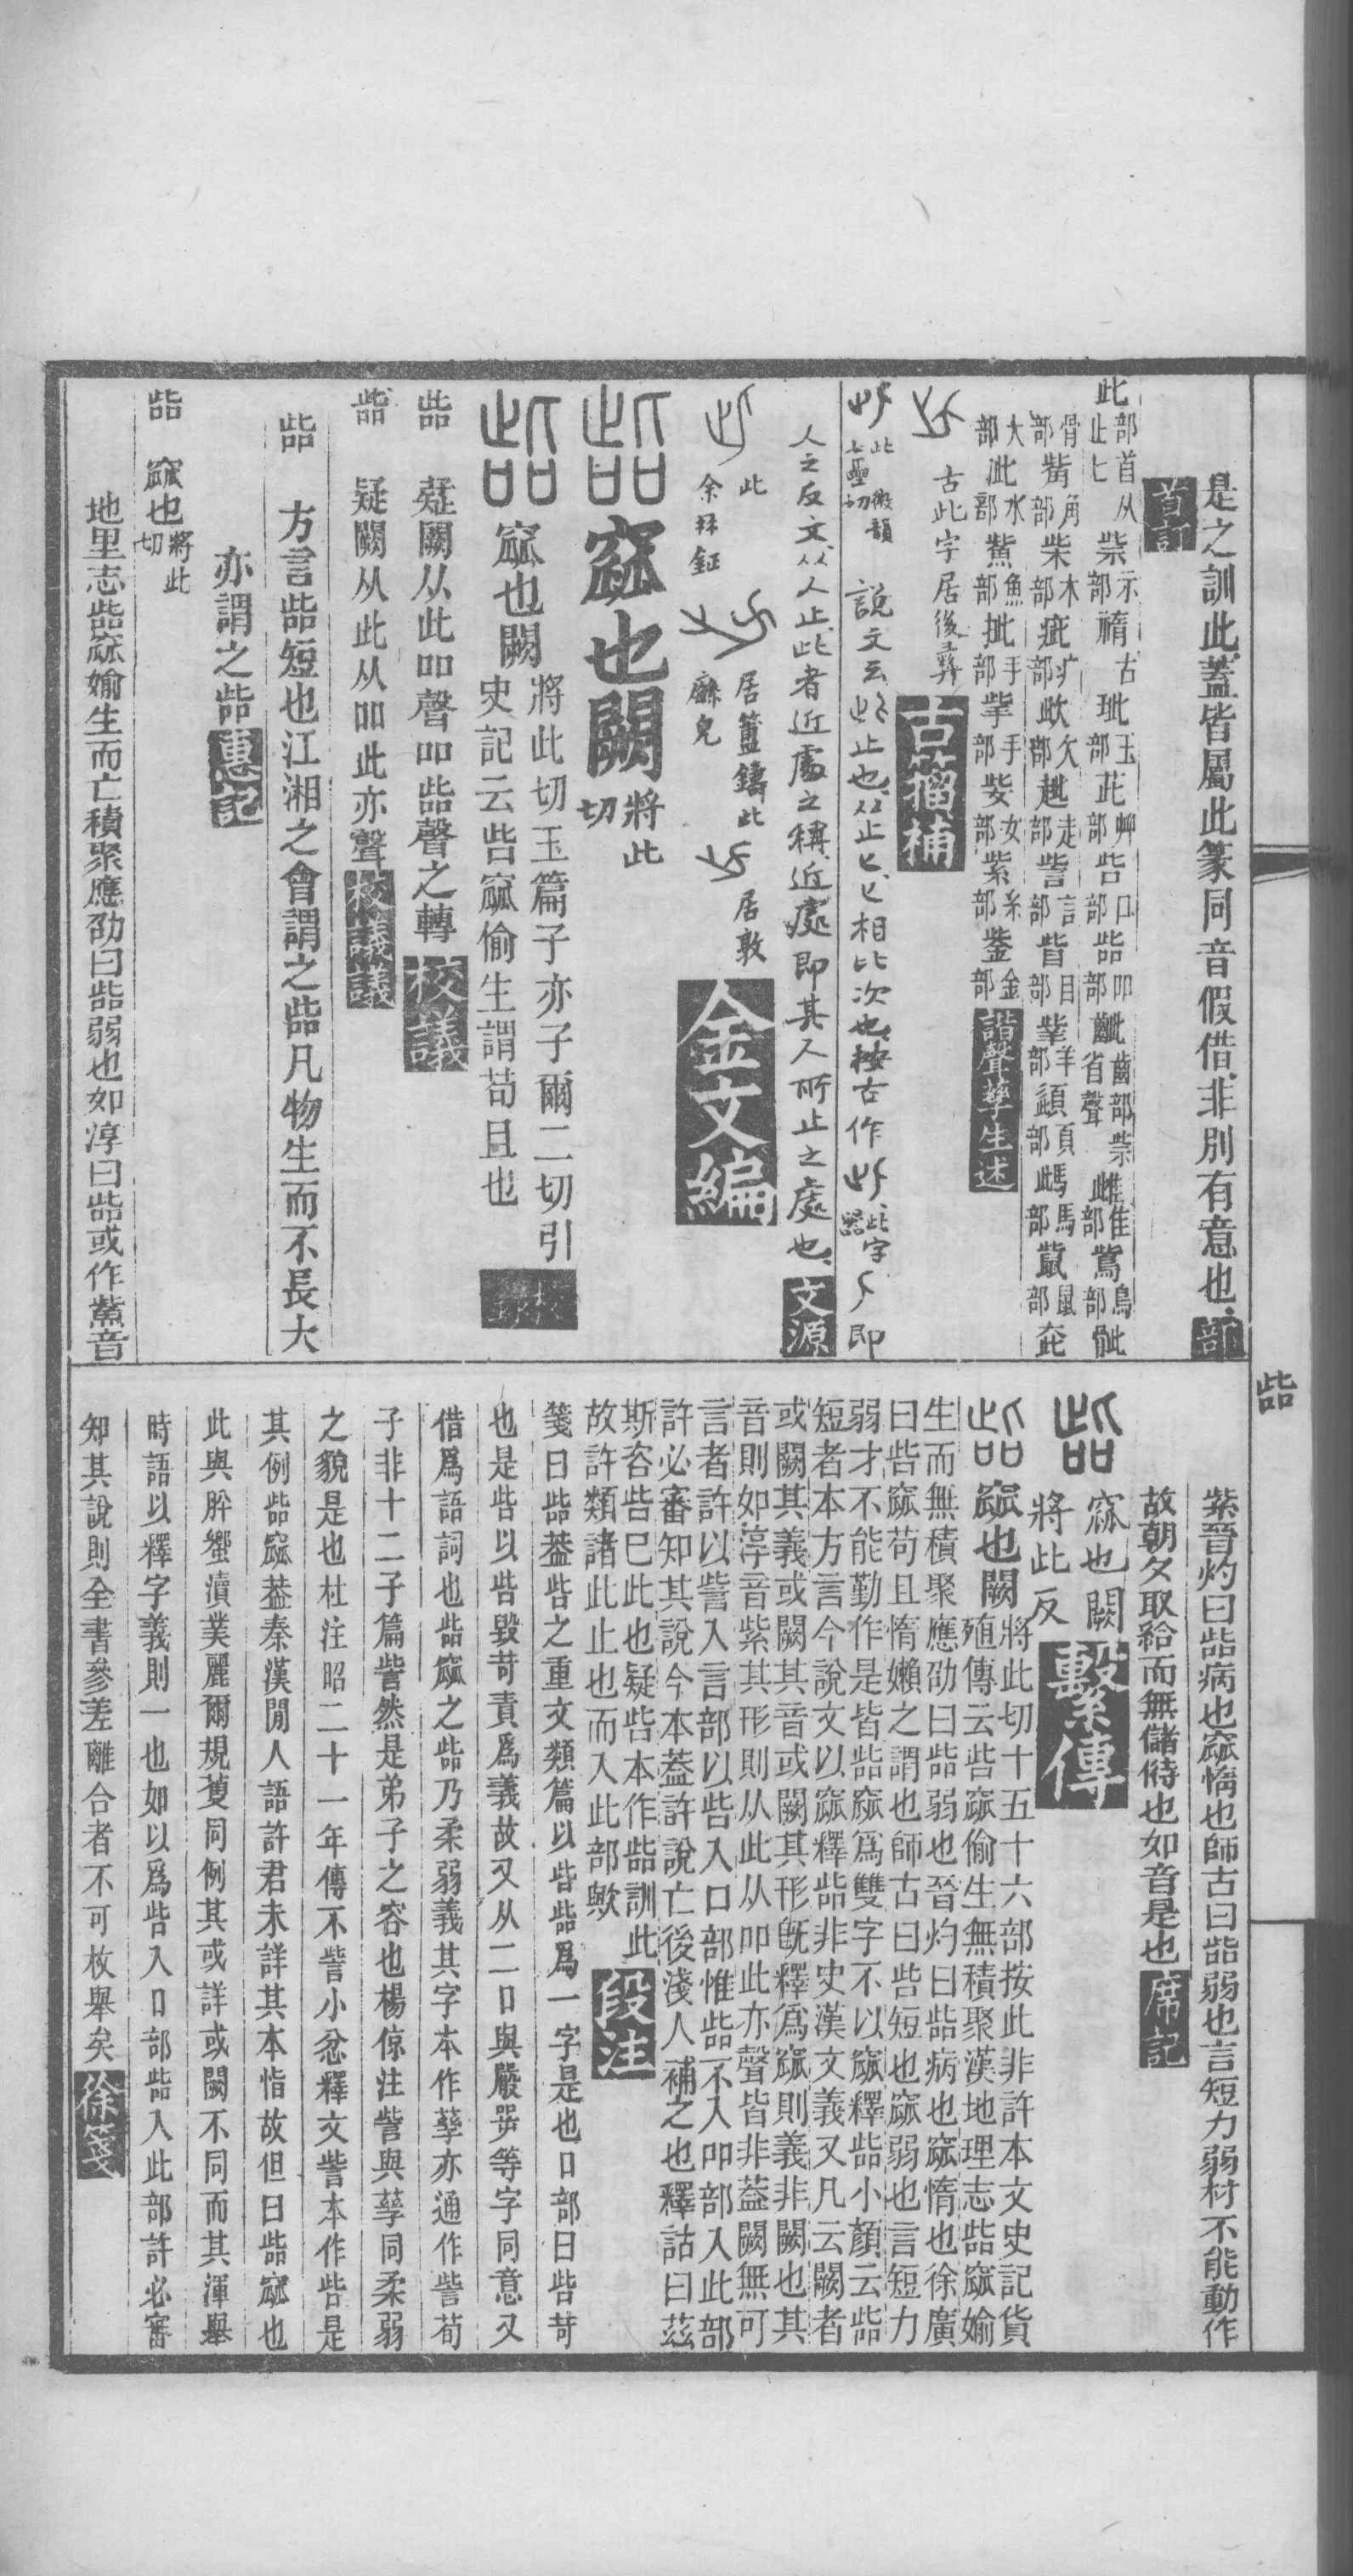 是之訓此蓋皆屬此篆同音假借非別有意也部
首訂
此部首从止匕 祡示部 𥛨古 玼玉部 茈艸部 呰口部 㗪吅部 齜齒部祡省聲 雌隹部 鴜鳥部 骴
骨部 觜角部 柴木部 疵疒部 㱔欠部 赼走部 訾言部 眥目部 羜羊部 頾頁部 𩢑馬部 鼣鼠部 㧗
大部 泚水部 鮆魚部 批手部 掌手部 姕女部 紫糸部 鈭金部 諧聲孳生述
古此字居後彝 古籀補
此 微韻 說文云此止也从止匕匕相比次也按古作此此字器即
人之反文从人止此者近處之稱近處即其人所止之處也 文源
此 余冉鉦 居簠鑄此 居敦
麻皃
金文編
㗪 窳也闕 將此切
㗪 窳也闕 將此切玉篇子亦子爾二切引
史記云呰窳偷生謂苟且也 校錄
㗪 疑闕从此吅聲吅㗪聲之轉 校議
㗪 疑闕从此从吅此亦聲 校議議
㗪 方言㗪短也江湘之會謂之㗪凡物生而不長大
亦謂之㗪 惠記
㗪 窳也 將此切
地里志㗪窳媮生而亡積聚應劭曰㗪弱也如淳曰㗪或作鮆音
㗪
紫晉灼曰㗪病也窳惰也師古曰㗪弱也言短力弱材不能動作
故朝夕取給而無儲偫也如音是也 席記
㗪 窳也闕
將此反 繫傳
㗪 窳也闕 將此切十五十六部按此非許本文史記貨
殖傳云呰窳偷生無積聚漢地理志㗪窳媮
生而無積聚應劭曰㗪弱也晉灼曰㗪病也窳惰也徐廣
曰呰窳苟且惰嬾之謂也師古曰呰短也窳弱也言短力
弱才不能勤作是皆㗪窳爲雙字不以窳釋㗪小顏云㗪
短者本方言今說文以窳釋㗪非史漢文義又凡云闕者
或闕其義或闕其音或闕其形旣釋爲窳則義非闕也其
音則如淳音紫其形則从此从吅此亦聲皆非葢闕無可
言者許以訾入言部以呰入口部惟㗪不入吅部入此部
許必審知其說今本葢許說亡後淺人補之也釋詁曰茲
斯咨呰已此也疑呰本作㗪訓此
故許類諸此止也而入此部歟 段注
箋曰㗪葢呰之重文類篇以呰㗪爲一字是也口部曰呰苛
也是呰以呰毀苛責爲義故又从二口與嚴㖾等字同意又
借爲語詞也㗪窳之㗪乃柔弱義其字本作孳亦通作訾荀
子非十二子篇訾然是弟子之容也楊倞注訾與孳同柔弱
之貌是也杜注昭二十一年傳不訾小忿釋文訾本作呰是
其例㗪窳葢秦漢閒人語許君未詳其本恉故但曰㗪窳也
此與肸蠁瀆菐麗爾規蒦同例其或詳或闕不同而其渾舉
時語以釋字義則一也如以爲呰入口部㗪入此部許必審
知其說則全書參差離合者不可枚舉矣 徐箋